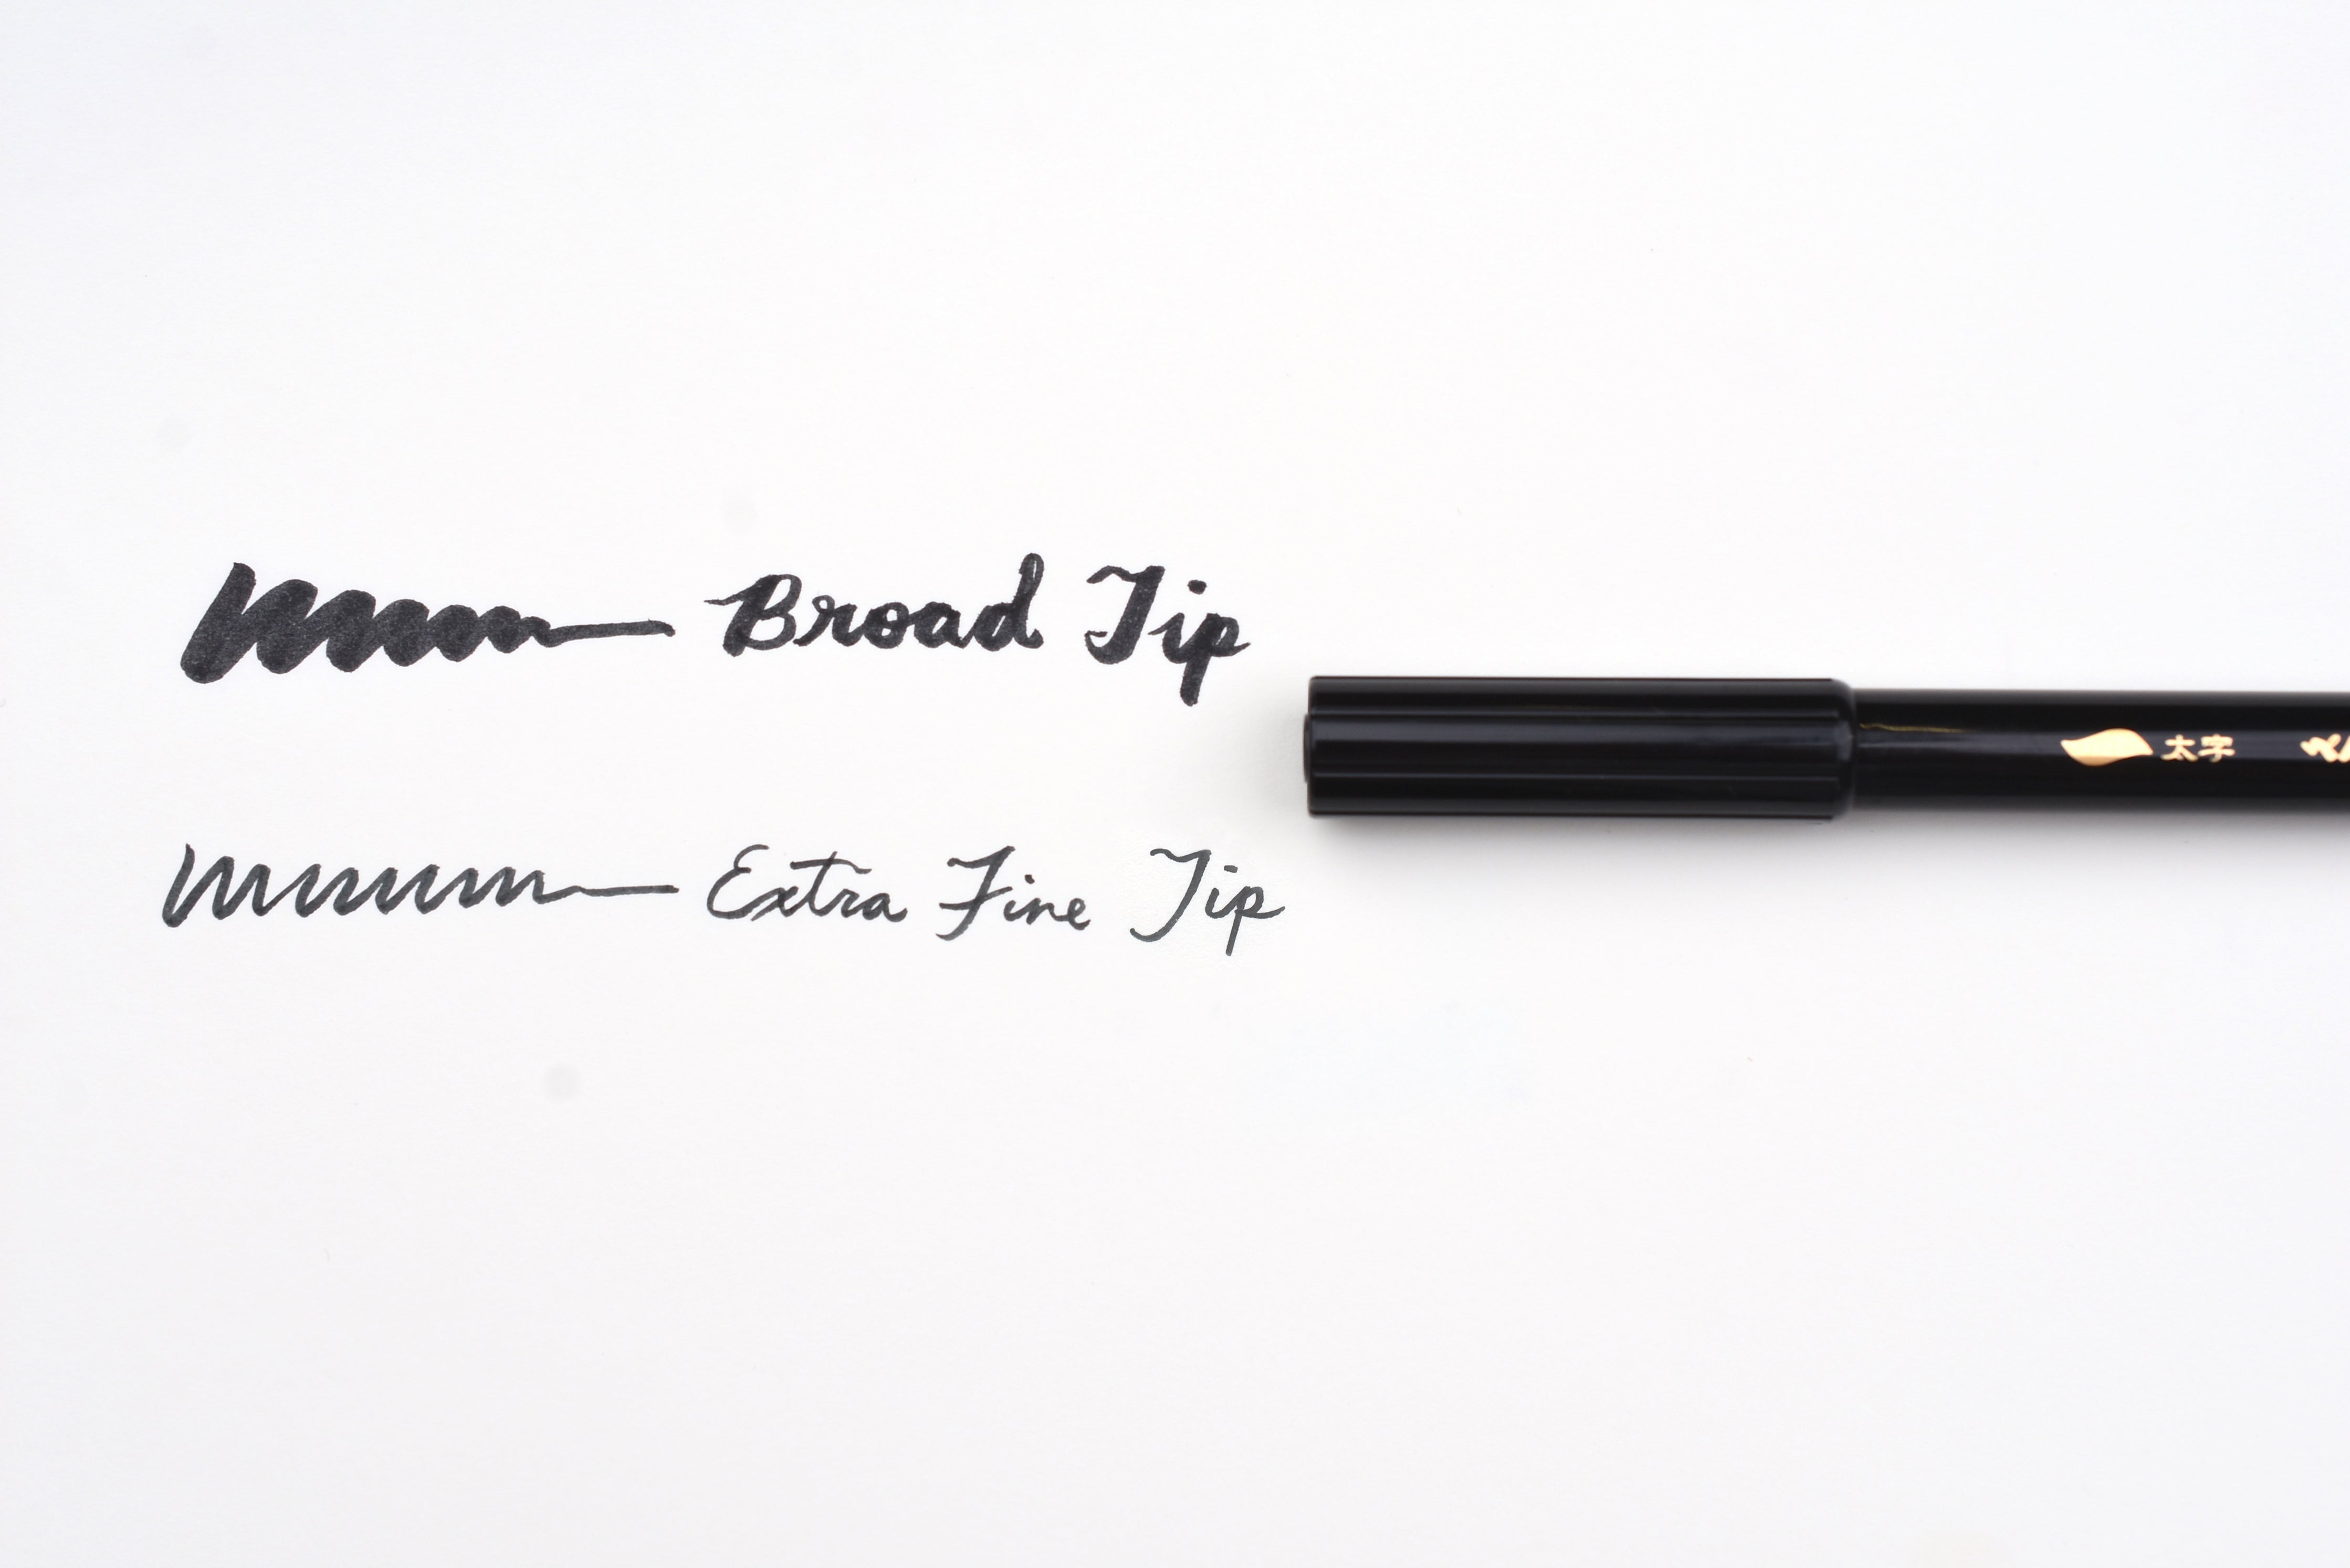 Broad Tip
太字
Extra Fine Tip